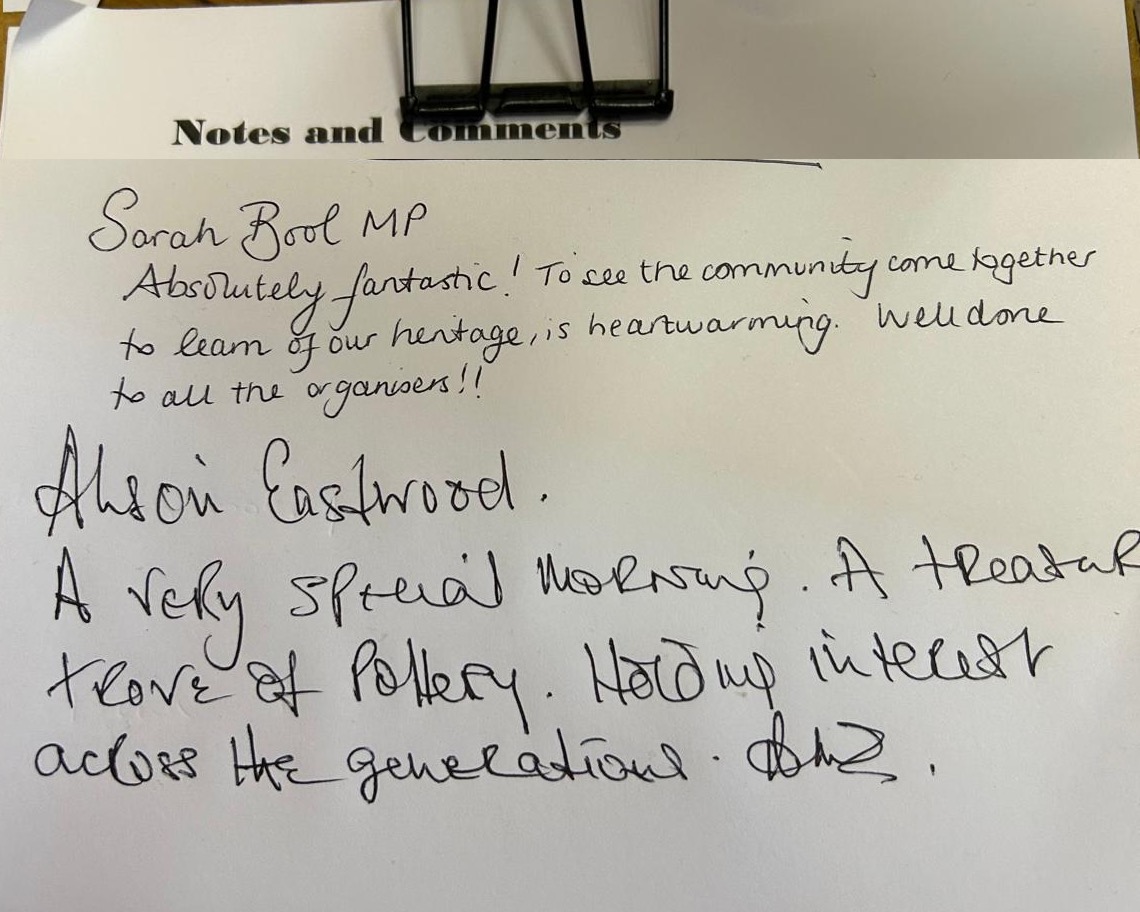 Notes and Comments
Sarah Bool MP
Absolutely fantastic! To see the community come together
to learn of our heritage, is heartwarming. Well done
to all the organisers!!
Alison Eastwood.
A very special morning. A treasur
trove of Pottery. Holding interest
across the generations.